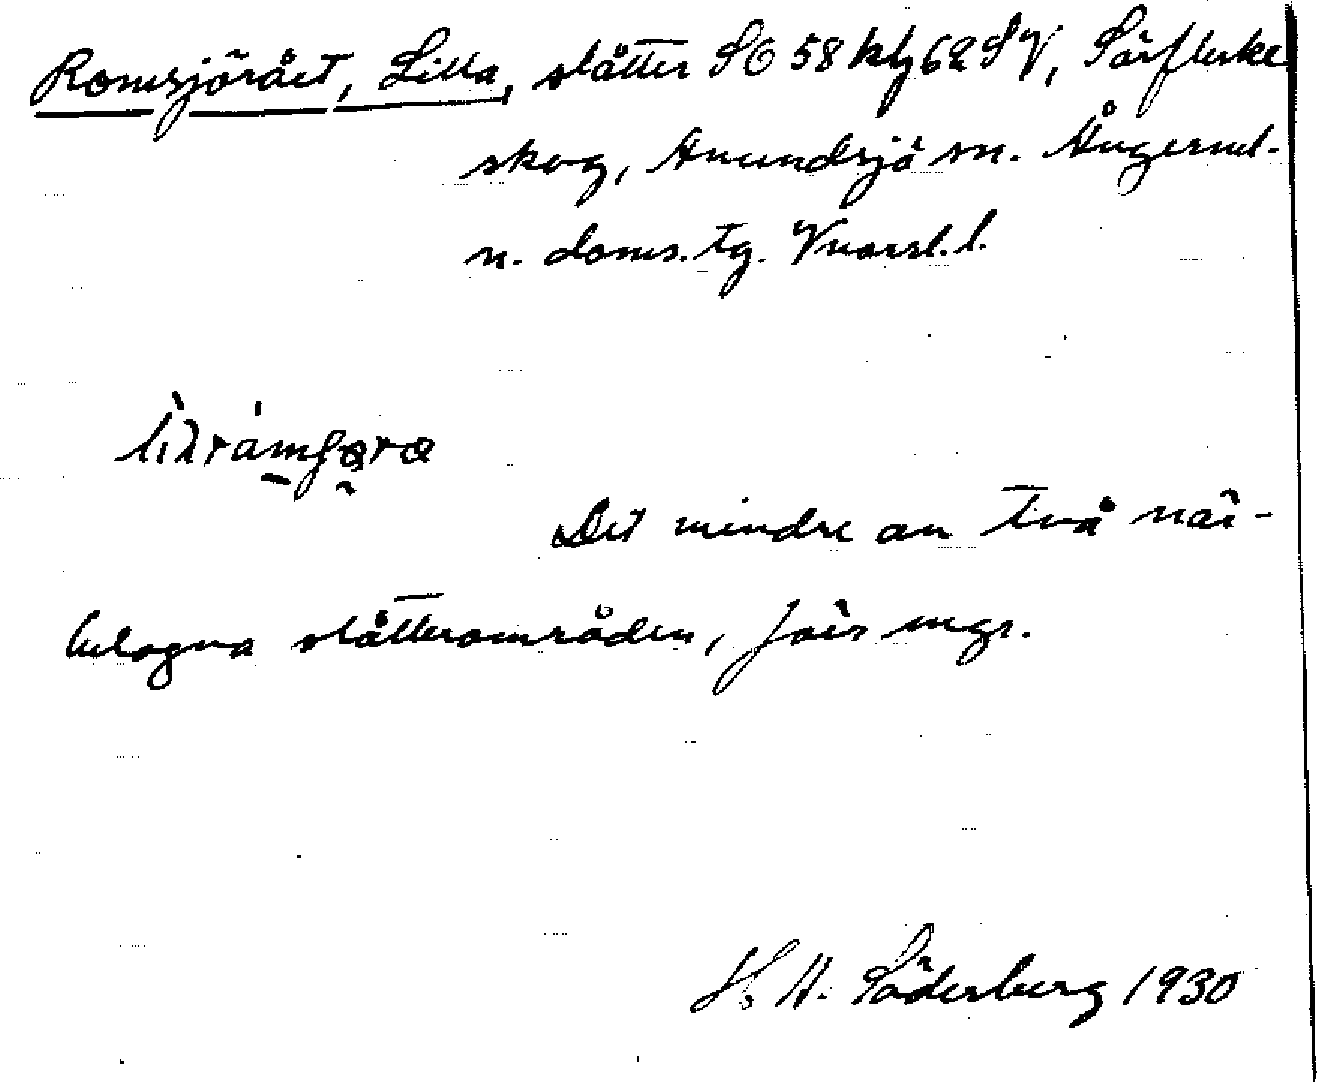 Romsjörået, Lilla, slåtter SO 58 klg 62 SV, Särflerke
skog, Anundsjö sn. Ångerml.
n. doms. tg. Vnorrl. l.
Det mindre av två när-
belagna slåtterområden, förr mgs.
H. A. Söderberg 1930